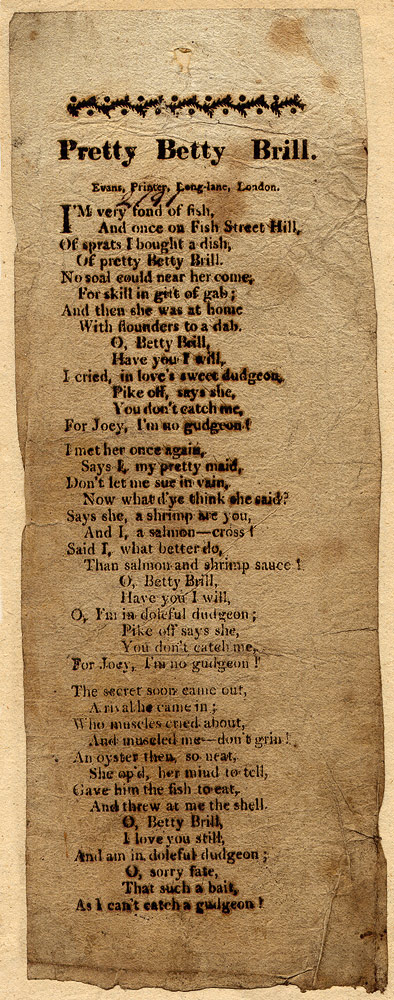 Pretty Betty Brill.
Evans, Printer, Long-lane, London.
I'M very fond of fish,
And once on Fish Street Hill,
Of sprats I bought a dish,
Of pretty Betty Brill.
No soal could near her come,
For skill in gift of gab;
And then she was at home
With flounders to a dab.
O, Betty Brill,
Have you I will,
I cried, in love's sweet dudgeon,
Pike off, says she,
You don't catch me,
For Joey, I'm no gudgeon!
I met her once again,
Says I, my pretty maid,
Don't let me sue in vain,
Now what d'ye think she said?
Says she, a shrimp are you,
And I, a salmon—cross!
Said I, what better do,
Than salmon and shrimp sauce!
O, Betty Brill,
Have you I will,
O, I'm in doleful dudgeon;
Pike off says she,
You don't catch me,
For Joey, I'm no gudgeon!'
The secret soon came out,
A rival he came in;
Who muscles cried about,
And muscled me—don't grin!
An oyster then, so neat,
She op'd, her mind to tell,
Gave him the fish to eat,
And threw at me the shell.
O, Betty Brill,
I love you still,
And am in doleful dudgeon;
O, sorry fate,
That such a bait,
As I can't catch a gudgeon!